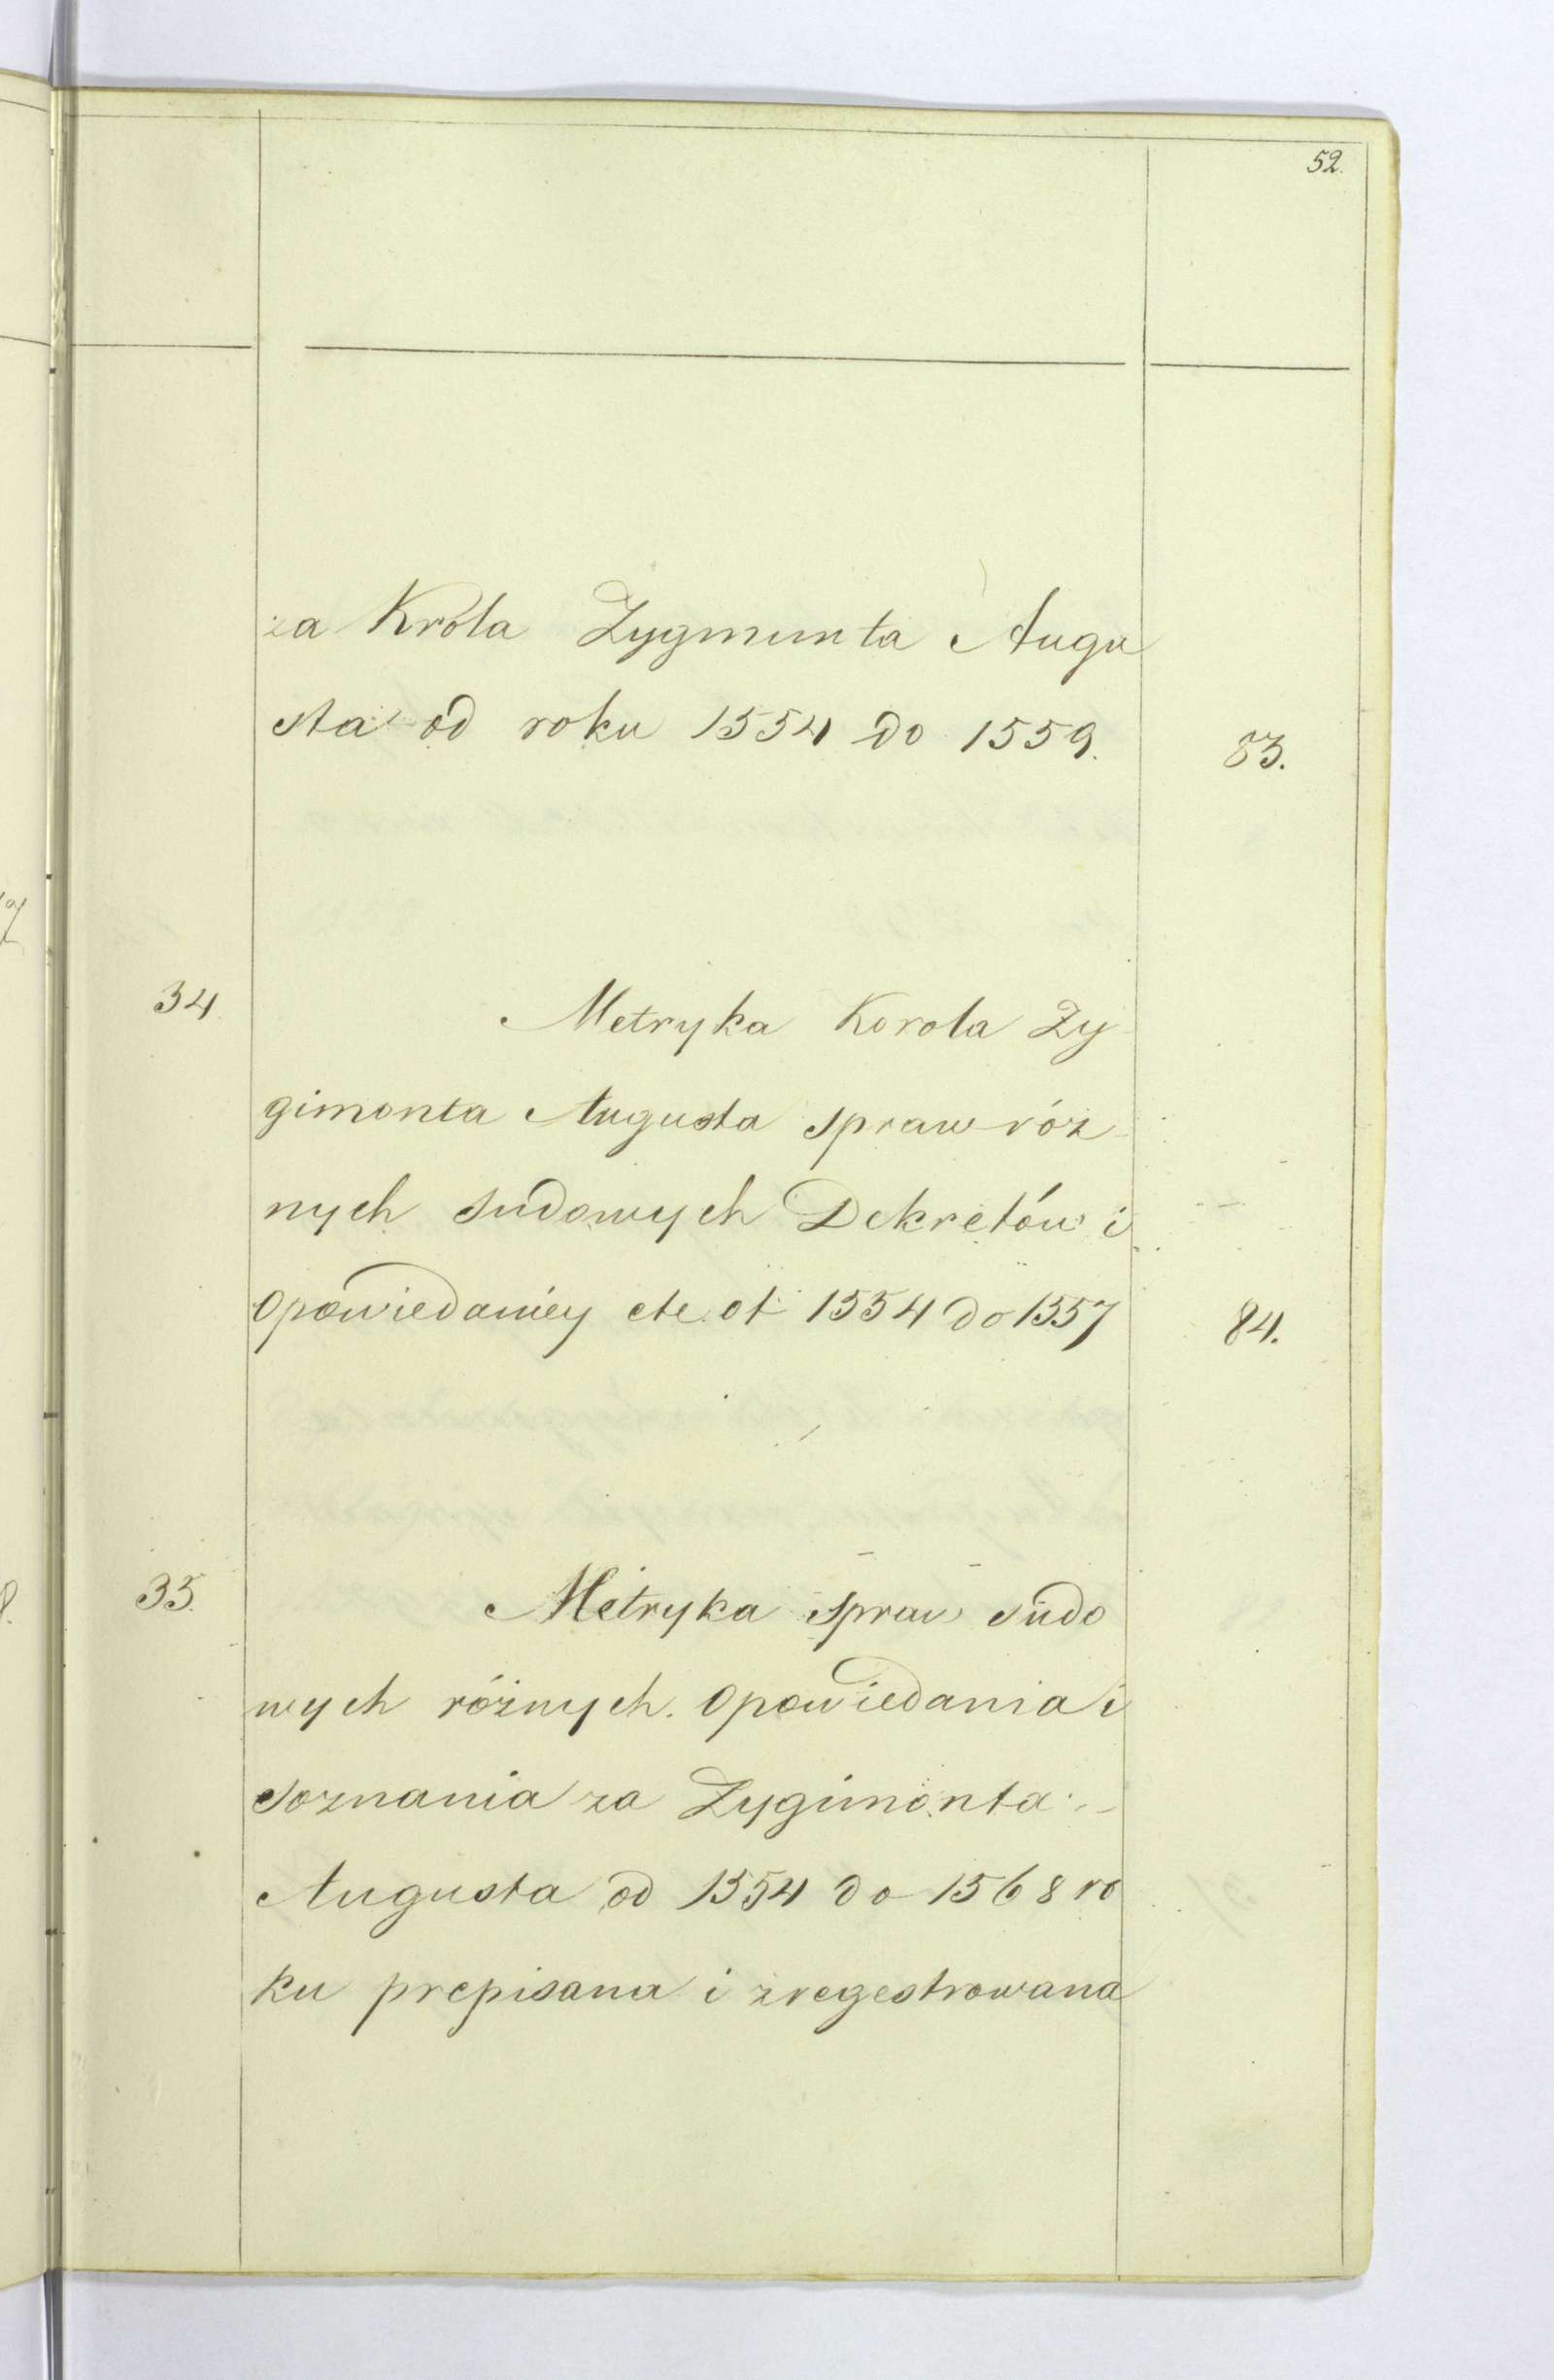 52.
za Króla Zygmunta Augu
sta od roku 1554 do 1559.
83.
34
Metryka Korola Zy
gimonta Augusta spraw róż
nych sudowych Dekretów i
Opowiedaniey etc. ot 1554 do 1557
84.
35.
Metryka spraw sudo
wych różnych. Opowiedania i
soznania za Zygimonta
Augusta od 1554 do 1568 ro
ku prepisana i zregestrowana